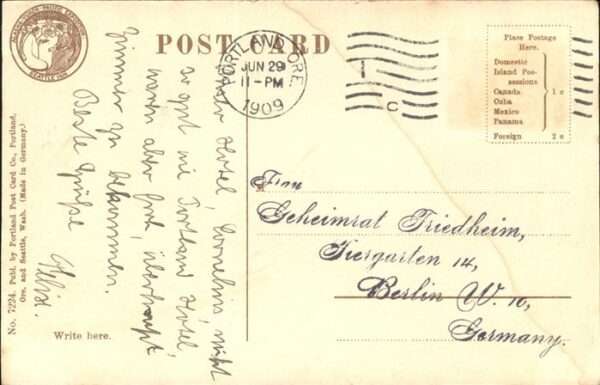 ALASKA-YUKON-PACIFIC EXPOSITION
SEATTLE 1909
POST CARD
PORTLAND, ORE.
JUN 29
11-PM
1909
1
C
Place Postage
Here.
Domestic
Island Pos-
sessions
Canada
Cuba
Mexico
Panama
1 c
Foreign 2 c
Hotel, Cornelius, nicht
so gut wie Portland Hotel,
waren aber froh, überhaupt
Zimmer zu bekommen.
Beste Grüße
Felix.
Frau
Geheimrat Friedheim,
Tiergarten 14,
Berlin W. 10,
Germany.
Write here.
No. 7224. Publ. by Portland Post Card Co., Portland,
Ore. and Seattle, Wash. (Made in Germany.)